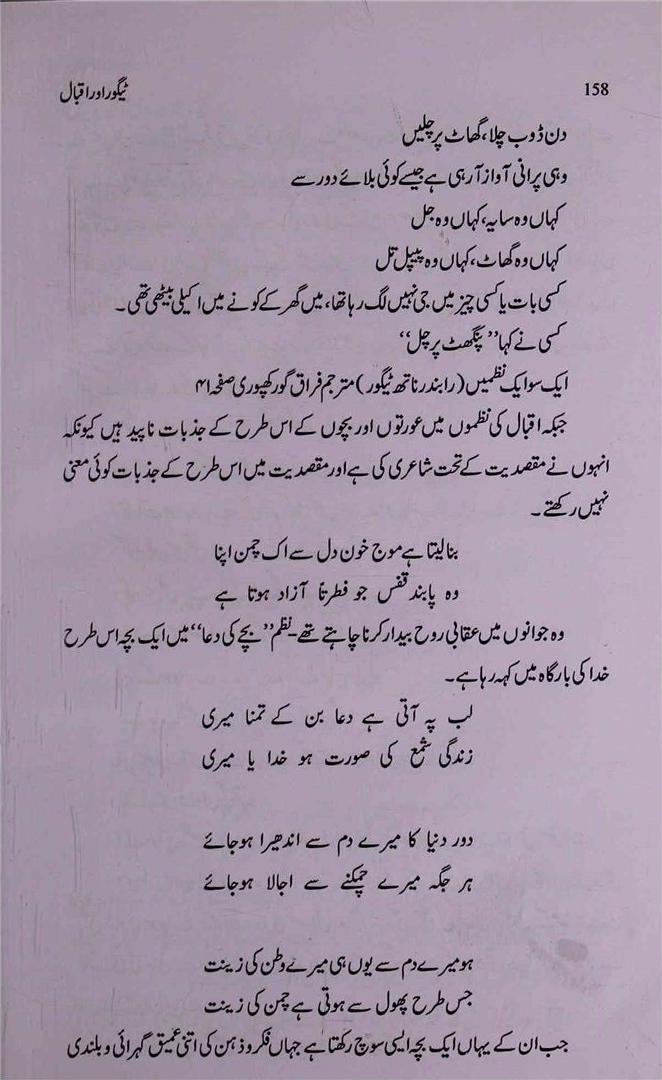 158
ٹیگور اور اقبال
دن ڈوب چلا، گھاٹ پر چلیں
وہی پرانی آواز آرہی ہے جیسے کوئی بلائے دور سے
کہاں وہ سایہ، کہاں وہ جل
کہاں وہ گھاٹ، کہاں وہ پیپل تل
کسی بات یا کسی چیز میں جی نہیں لگ رہا تھا، میں گھر کے کونے میں اکیلی بیٹھی تھی۔
کسی نے کہا ”پنگھٹ پر چل“
ایک سو ایک نظمیں (رابندر ناتھ ٹیگور) مترجم فراق گورکھپوری صفحہ ۴۱
جبکہ اقبال کی نظموں میں عورتوں اور بچوں کے اس طرح کے جذبات ناپید ہیں کیونکہ
انہوں نے مقصدیت کے تحت شاعری کی ہے اور مقصدیت میں اس طرح کے جذبات کوئی معنی
نہیں رکھتے۔
بنا لیتا ہے موج خون دل سے اک چمن اپنا
وہ پابند قفس جو فطرتاً آزاد ہوتا ہے
وہ جوانوں میں عقابی روح بیدار کرنا چاہتے تھے۔ نظم ”بچے کی دعا“ میں ایک بچہ اس طرح
خدا کی بارگاہ میں کہہ رہا ہے۔
لب پہ آتی ہے دعا بن کے تمنا میری
زندگی شمع کی صورت ہو خدا یا میری
دور دنیا کا میرے دم سے اندھیرا ہوجائے
ہر جگہ میرے چمکنے سے اجالا ہوجائے
ہو میرے دم سے یوں ہی میرے وطن کی زینت
جس طرح پھول سے ہوتی ہے چمن کی زینت
جب ان کے یہاں ایک بچہ ایسی سوچ رکھتا ہے جہاں فکر و ذہن کی اتنی عمیق گہرائی و بلندی